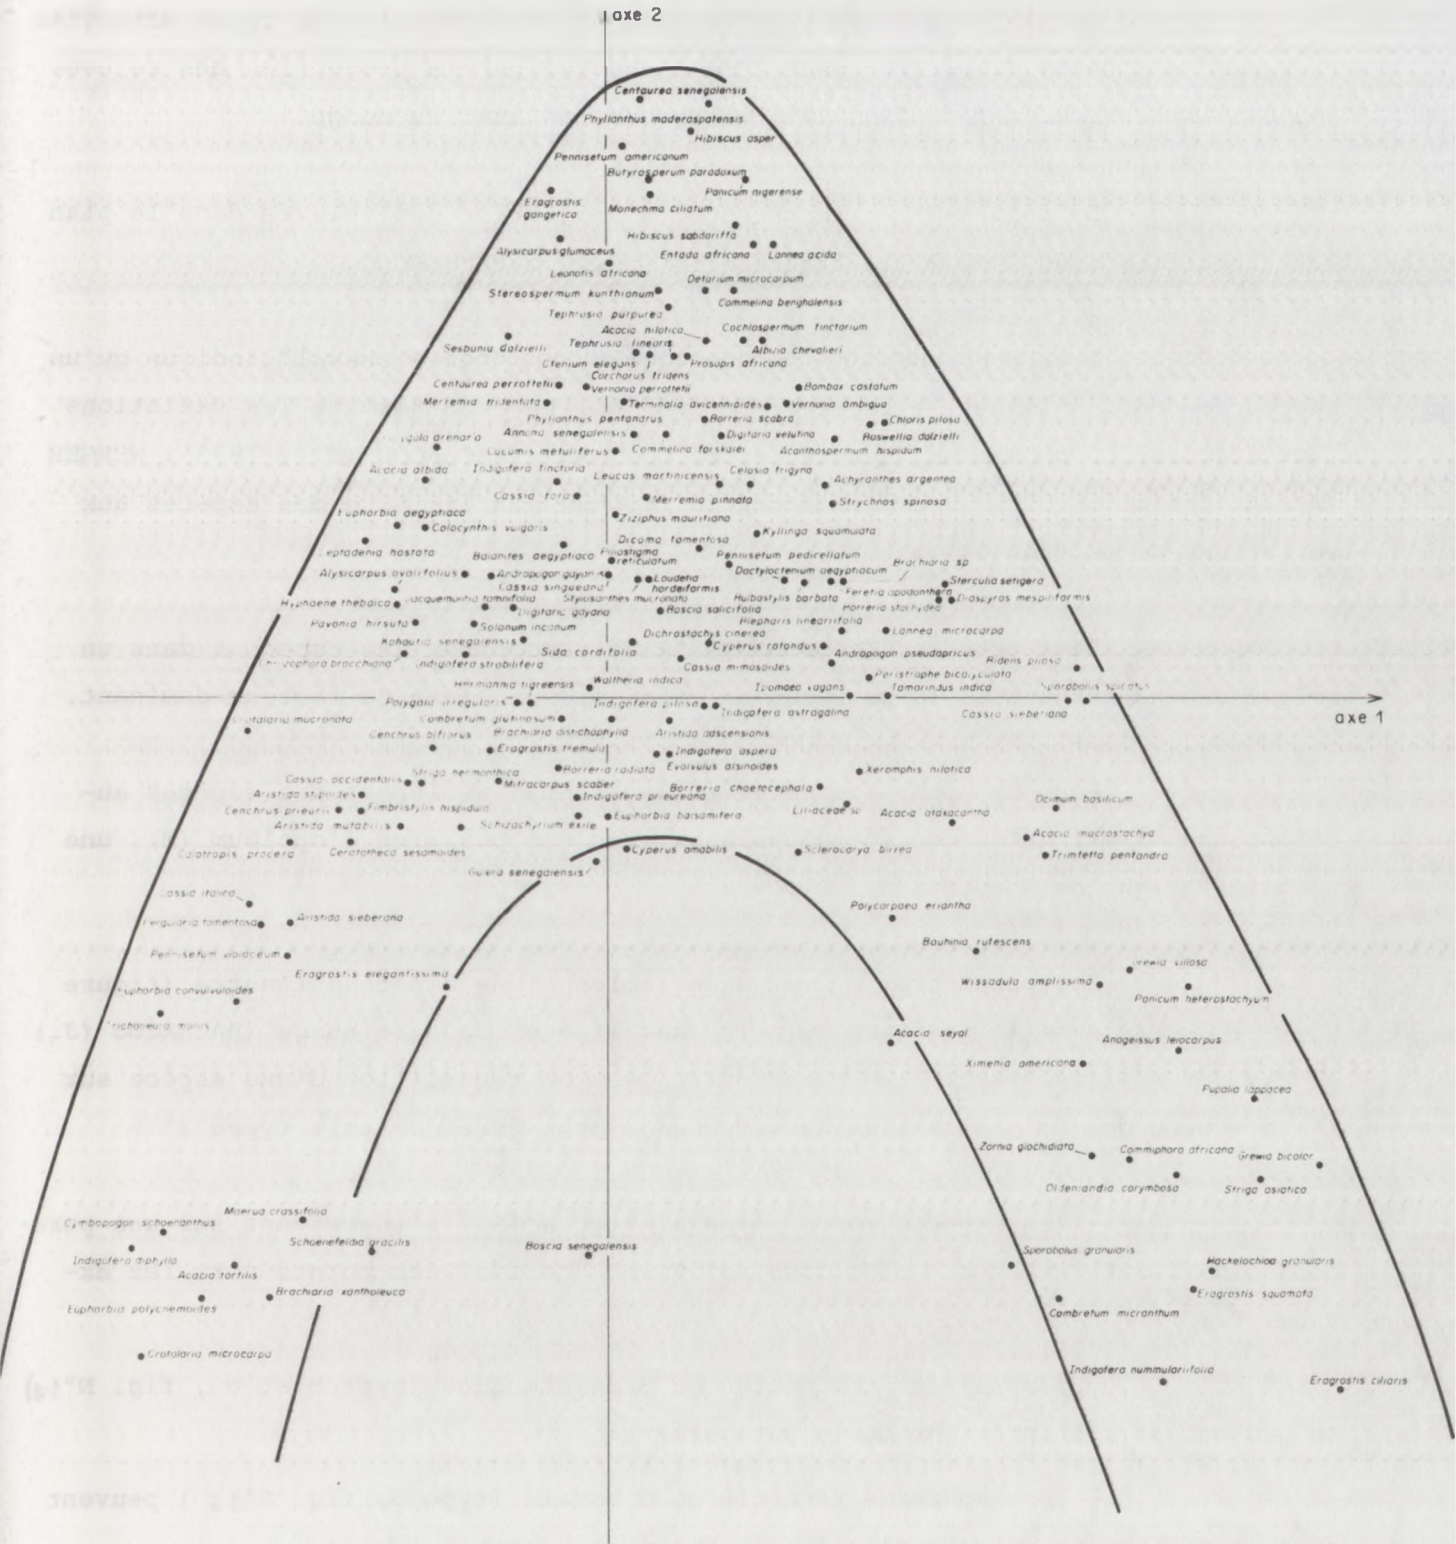 axe 2
Centaurea senegalensis
Phyllanthus maderaspatensis
Hibiscus asper
Pennisetum americanum
Butyrosperum paradoxum
Panicum nigerense
Eragrostis
gangetica
Monechma ciliatum
Hibiscus sabdariffa
Alysicarpus glumaceus
Entada africana
Lannea acida
Leonotis africana
Detarium microcarpum
Stereospermum kunthianum
Commelina benghalensis
Tephrosia purpurea
Acacia nilotica
Cochlospermum tinctorium
Sesbania dalzielli
Tephrosia linearis
Albizia chevalieri
Ctenium elegans
Prosopis africana
Corchorus tridens
Centaurea perrottetii
Vernonia perrottetii
Bombax costatum
Merremia tridentata
Terminalia avicennioides
Vernonia ambigua
Phyllanthus pentandrus
Borreria scabra
Chloris pilosa
arenaria
Annona senegalensis
Digitaria velutina
Boswellia dalzielli
Cucumis metuliferus
Commelina forskalei
Acanthospermum hispidum
Acacia albida
Indigofera tinctoria
Leucas martinicensis
Celosia trigyna
Achyranthes argentea
Cassia tora
Merremia pinnata
Strychnos spinosa
Euphorbia aegyptiaca
Colocynthis vulgaris
Ziziphus mauritiana
Kyllinga squamulata
Dicoma tomentosa
eptadenia hastata
Balanites aegyptiaca
Piliostigma
reticulatum
Pennisetum pedicellatum
Brachiaria sp
Alysicarpus ovalifolius
Andropogon gayanus
Loudetia
hordeiformis
Dactyloctenium aegyptiacum
Sterculia setigera
Cassia singueana
Feretia apodanthera
Hyphaene thebaica
Jacquemontia tamnifolia
Stylosanthes mucronata
Bulbostylis barbata
Diospyros mespiliformis
Digitaria gayana
Boscia salicifolia
Borreria stachydea
Pavonia hirsuta
Solanum incanum
Blepharis linearifolia
Kohautia senegalensis
Dichrostachys cinerea
Lannea microcarpa
Sida cordifolia
Cyperus rotondus
Chrozophora brocchiana
Indigofera strobilifera
Cassia mimosoides
Andropogon pseudapricus
Bidens pilosa
Hermannia tigreensis
Waltheria indica
Peristrophe bicalyculata
Ipomoea vagans
Tamarindus indica
Sporobolis spicatus
Polygala irregularis
Indigofera pilosa
Indigofera astragalina
Cassia sieberiana
axe 1
Crotalaria mucronata
Combretum glutinosum
Cenchrus biflorus
Brachiaria distichophylla
Aristida adscensionis
Eragrostis tremula
Indigofera aspera
Striga hermonthica
Borreria radiata
Evolvulus alsinoides
Xeromphis nilotica
Cassia occidentalis
Mitracarpus scaber
Borreria chaetocephala
Aristida stipoides
Indigofera prieureana
Cenchrus prieurii
Fimbristylis hispidula
Liliaceae
Acacia ataxacantha
Ocimum basilicum
Aristida mutabilis
Schizachyrium exile
Euphorbia balsamifera
Acacia macrostachya
Calotropis procera
Ceratotheca sesamoides
Cyperus amabilis
Sclerocarya birrea
Trimfetta pentandra
Guiera senegalensis
Cassia italica
Pergularia tomentosa
Aristida sieberana
Polycarpaea eriantha
Pennisetum violaceum
Bauhinia rufescens
Eragrostis elegantissima
Grewia villosa
Euphorbia convulvuloides
Wissadula amplissima
Panicum heterostachyum
Trichoneura mollis
Acacia seyal
Anogeissus leiocarpus
Ximenia americana
Pupalia lappacea
Zornia glochidiata
Commiphora africana
Grewia bicolor
Oldenlandia corymbosa
Striga asiatica
Cymbopogon schoenanthus
Maerua crassifolia
Schoenefeldia gracilis
Boscia senegalensis
Sporobolus granularis
Indigofera diphylla
Hackelochloa granularis
Acacia tortilis
Brachiaria xantholeuca
Eragrostis squamata
Euphorbia polycnemoides
Combretum micranthum
Crotolaria microcarpa
Indigofera nummulariifolia
Eragrostis ciliaris